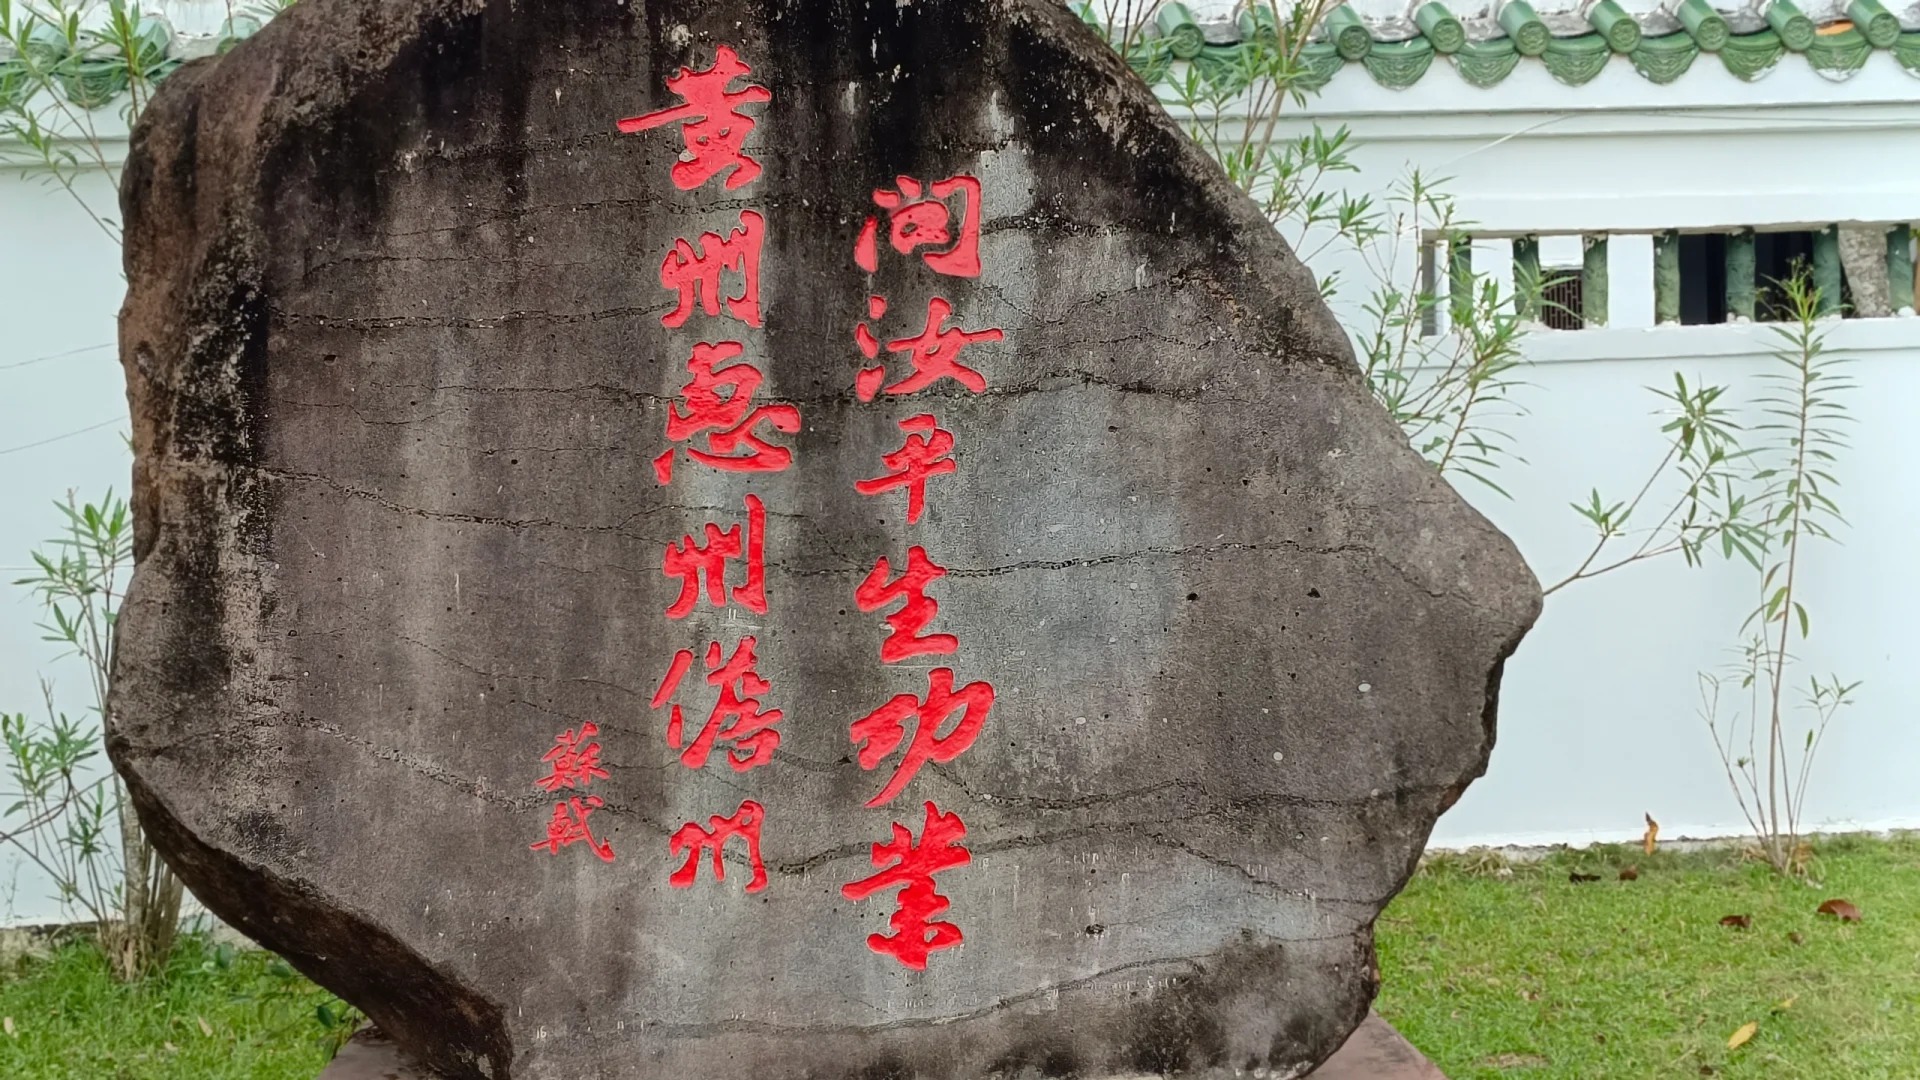 问汝平生功業
黄州惠州儋州
蘇軾